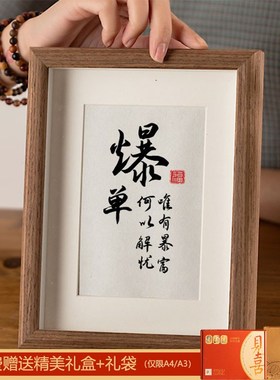 爆单
唯有暴富
何以解忧
赠送精美礼盒+礼袋 (仅限A4/A3)
見喜